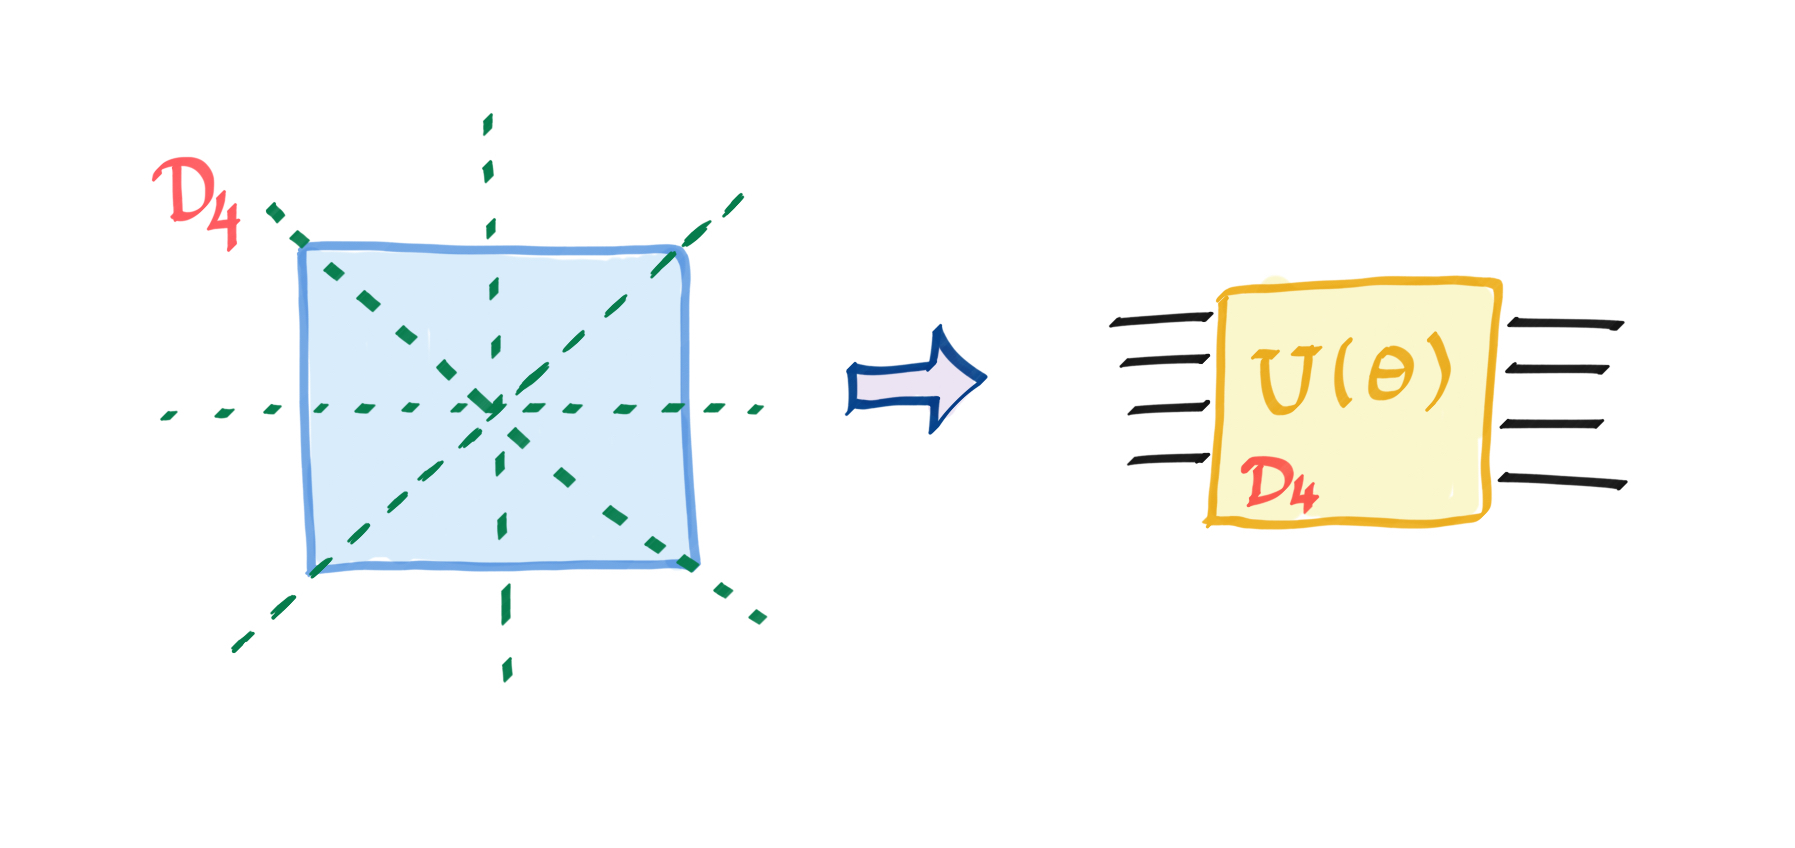 D4
U(θ)
D4